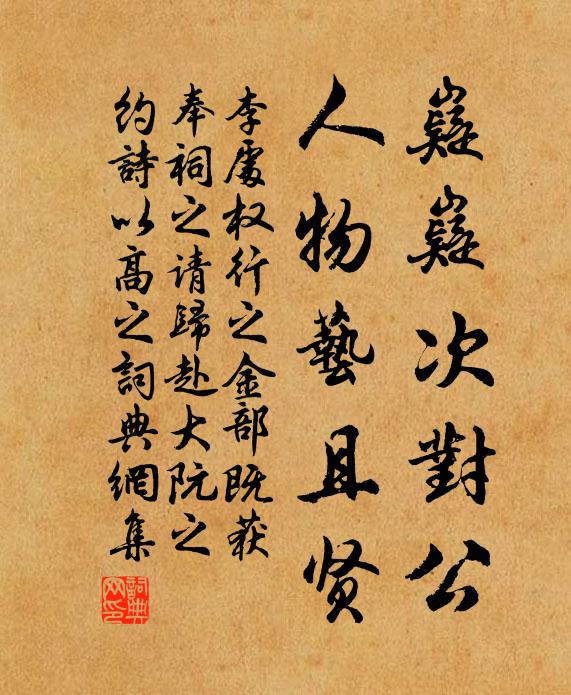 嶷嶷次對公
人物藝且贤
李處权行之金部既获
奉祠之请歸赴大阮之
约詩以高之詞典網集
詞典
网印